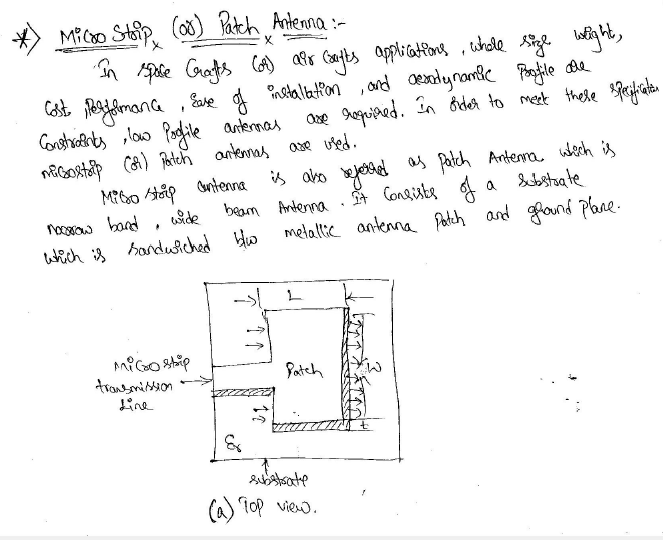 *) Micro Strip (or) Patch Antenna :-
In space Crafts (or) air crafts applications, whole size weight,
Cost, Performance, Ease of installation, and aerodynamic Profile are
Constraints, low Profile antennas are required. In order to meet these specification
microstrip (or) Patch antennas are used.
Micro strip antenna is also referred as Patch Antenna which is
narrow band, wide beam Antenna. It Consists of a substrate
which is sandwiched b/w metallic antenna Patch and ground Plane.
L
Micro strip
transmission
Line
Patch
W
t
εr
substrate
(a) Top view.